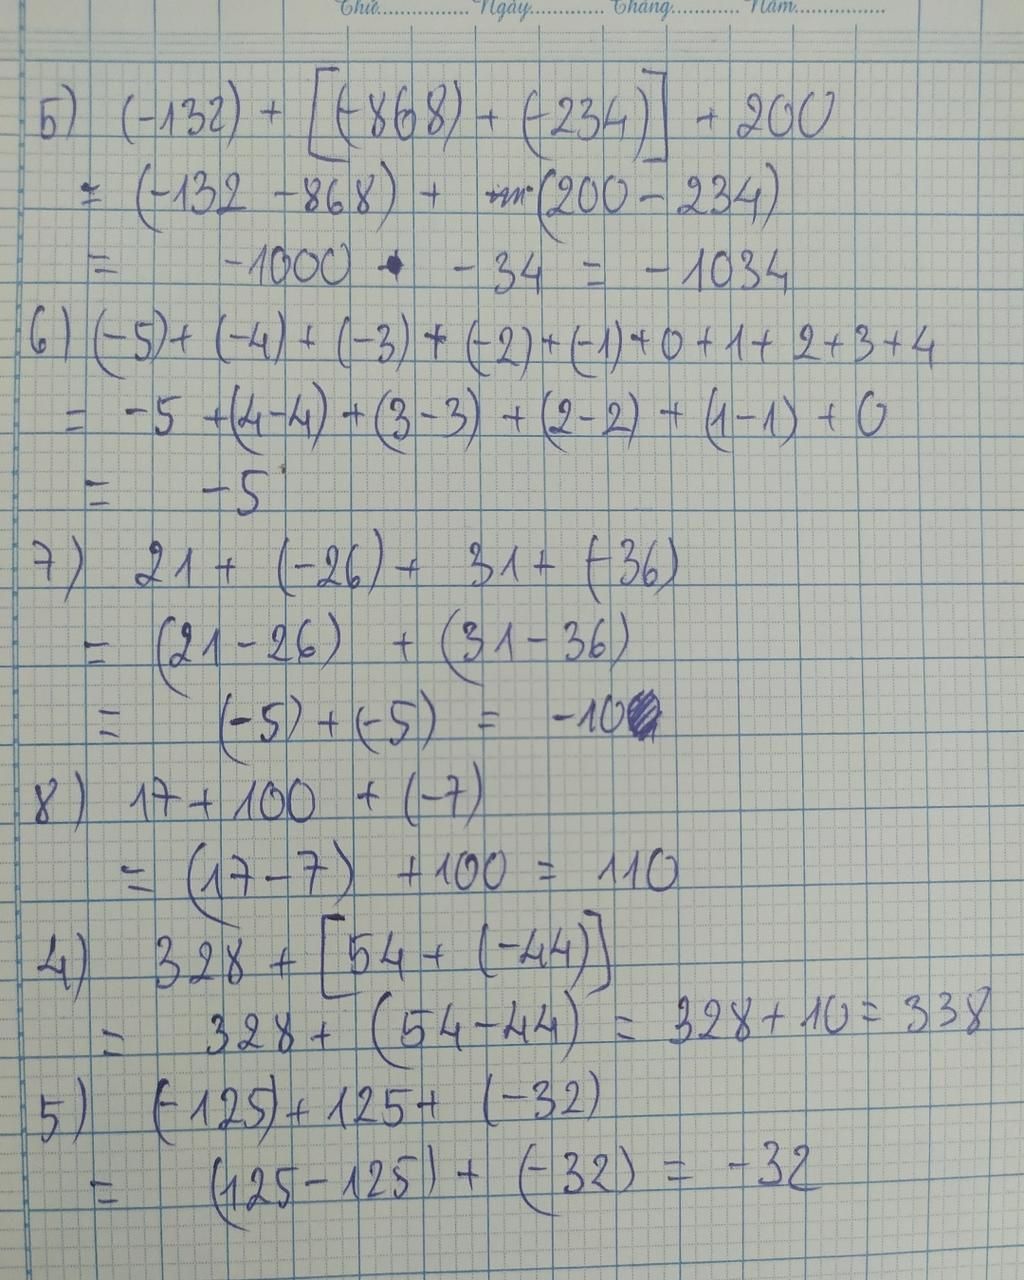 Thứ................ Ngày............. Tháng............ Năm................
5) (-132) + [(-868) + (-234)] + 200
= (-132 - 868) + (200 - 234)
= -1000 - 34 = - 1034
6) (-5) + (-4) + (-3) + (-2) + (-1) + 0 + 1 + 2 + 3 + 4
= -5 + (4-4) + (3-3) + (2-2) + (1-1) + 0
= -5
7) 21 + (-26) + 31 + (-36)
= (21 - 26) + (31 - 36)
= (-5) + (-5) = -10
8) 17 + 100 + (-7)
= (17 - 7) + 100 = 110
4) 328 + [54 + (-44)]
= 328 + (54 - 44) = 328 + 10 = 338
5) (-125) + 125 + (-32)
= (125 - 125) + (-32) = -32